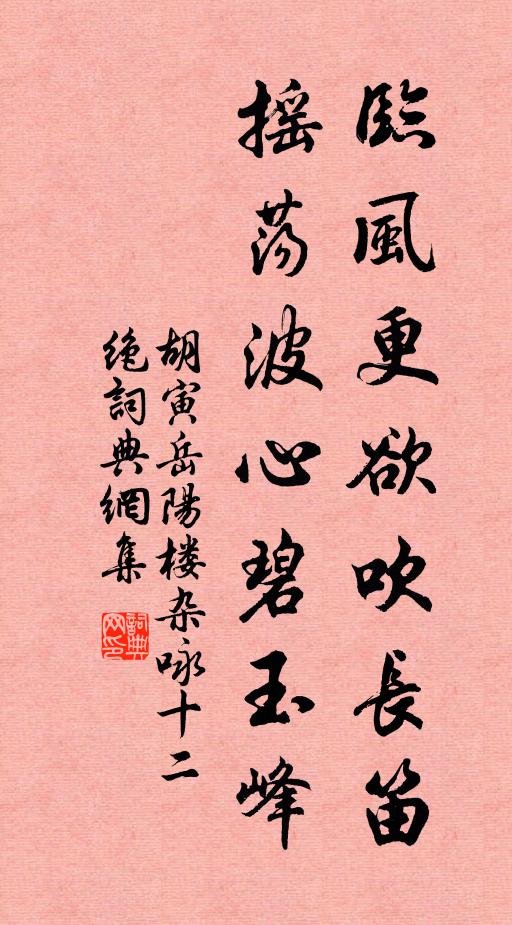 臨風更欲吹長笛
摇荡波心碧玉峰
胡寅岳陽楼杂咏十二
绝詞典網集
詞典
网印